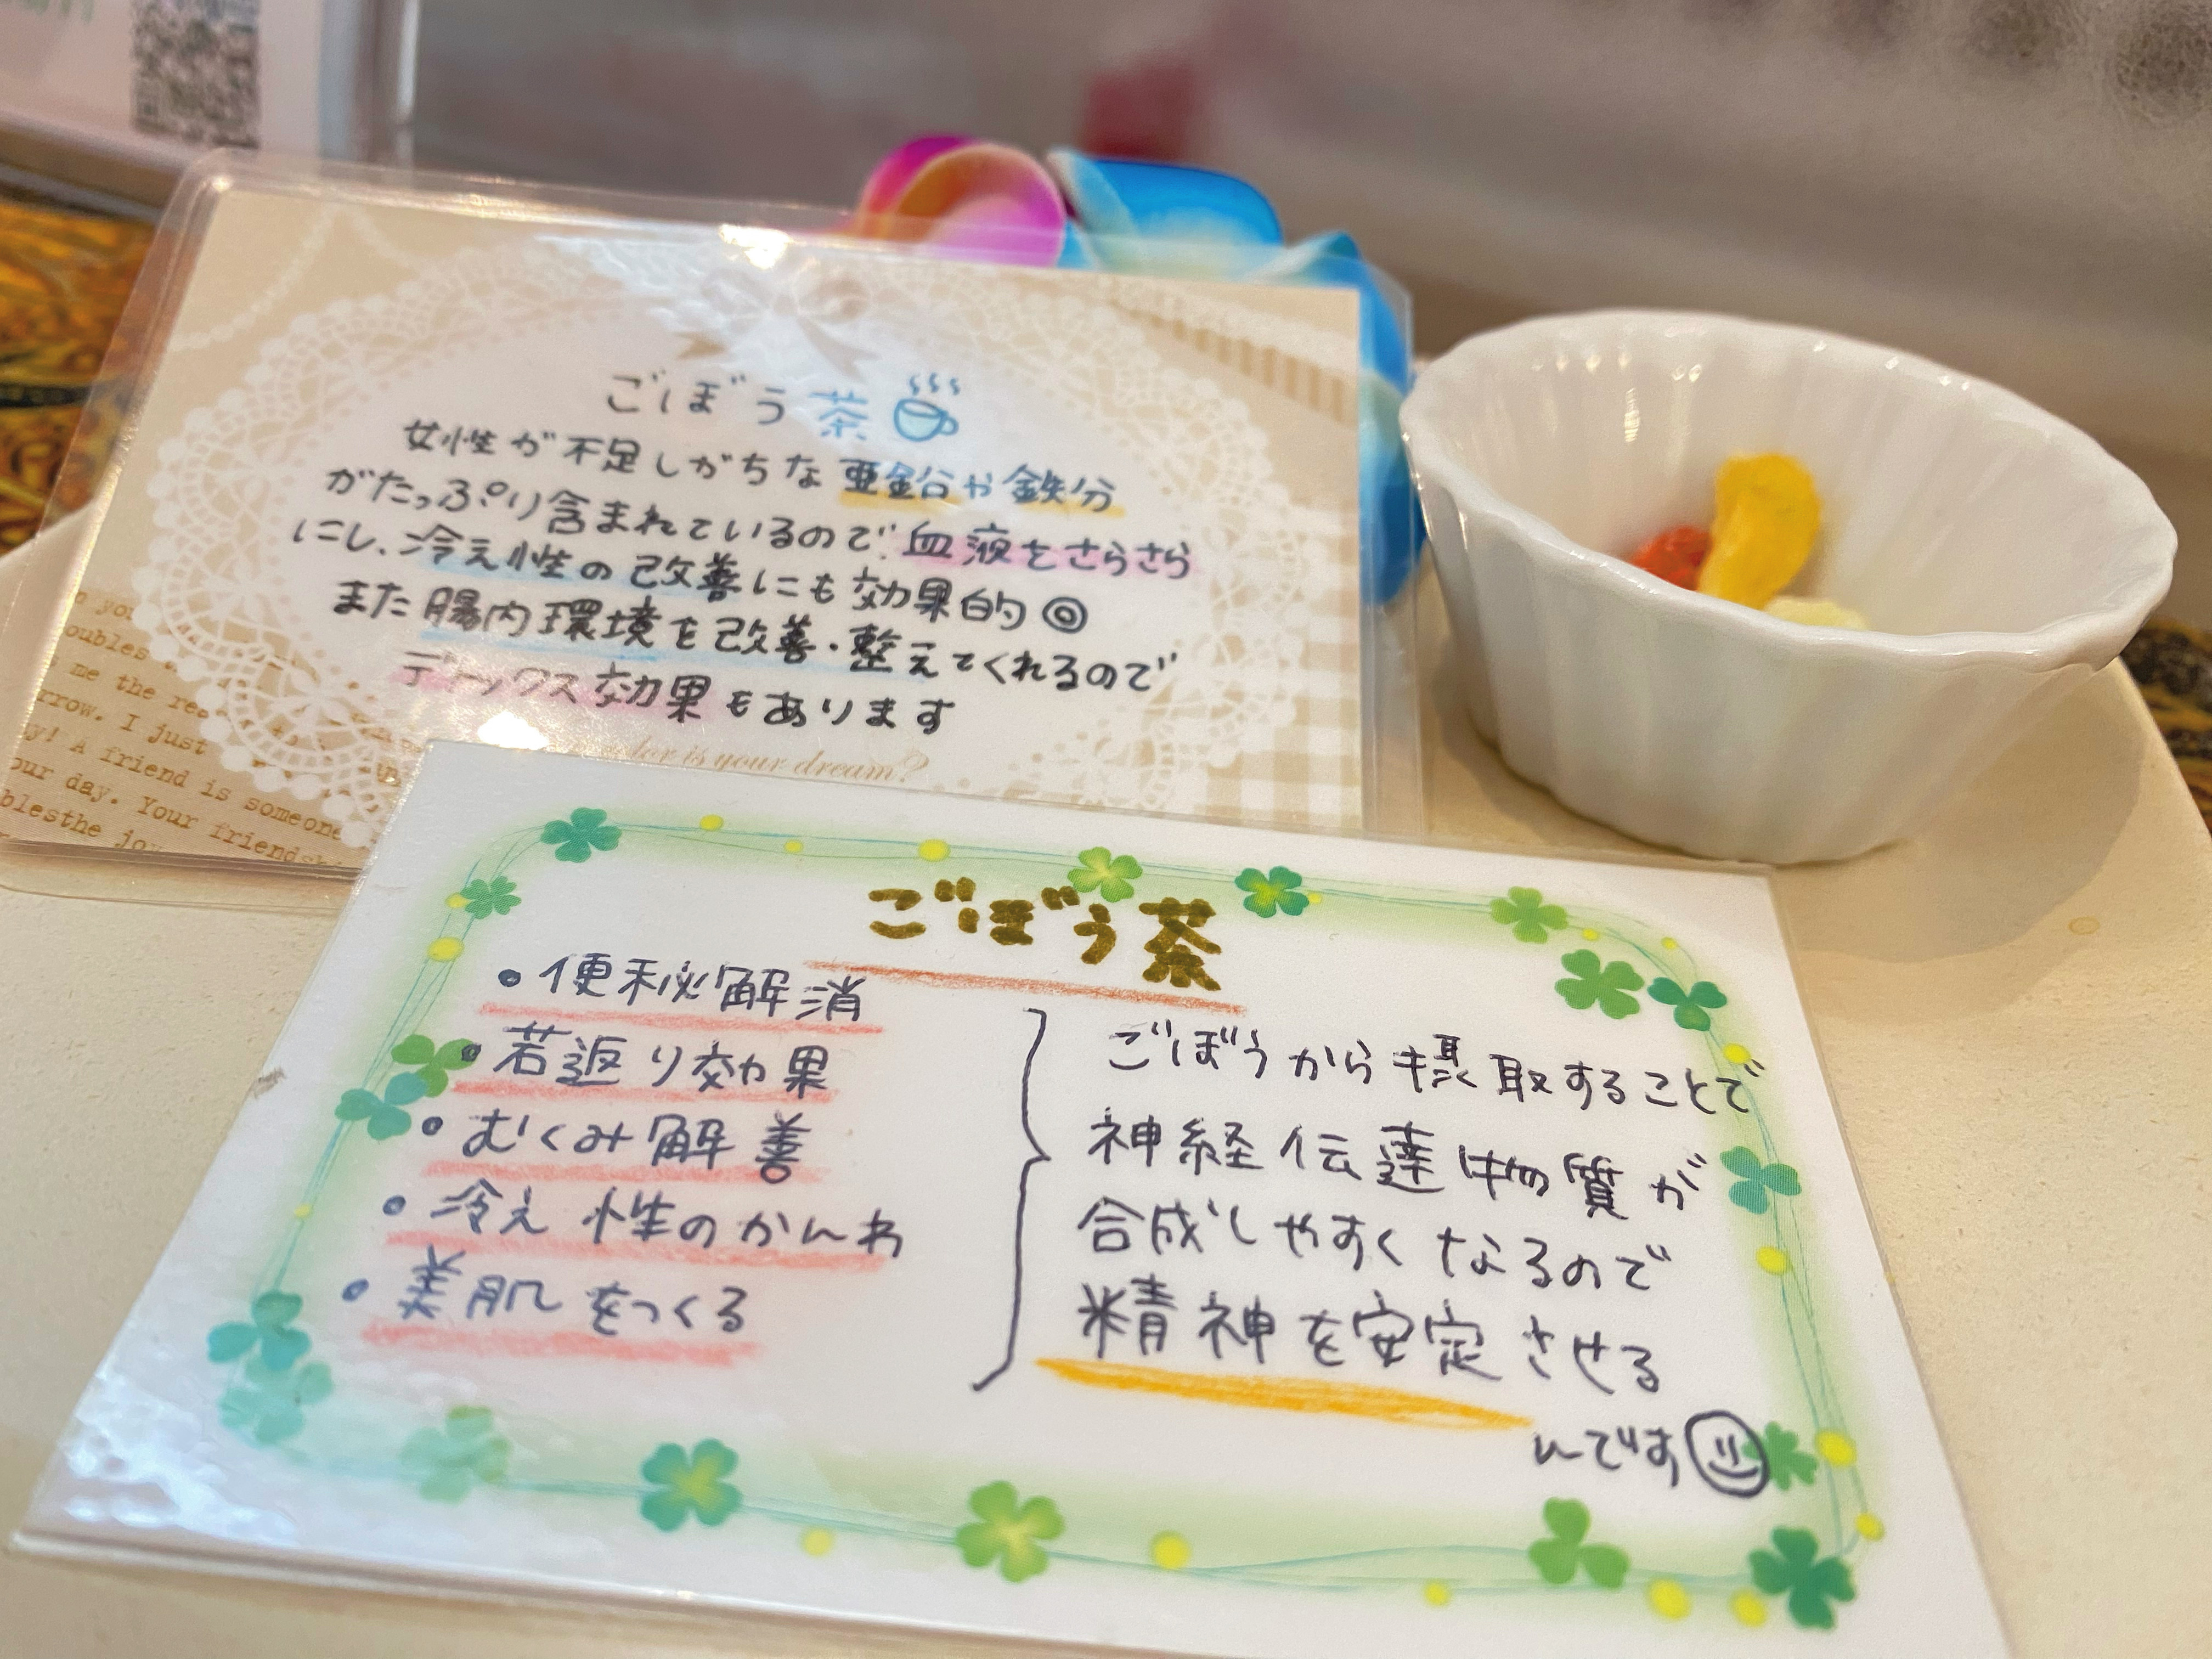 ごぼう茶
女性が不足しがちな亜鉛や鉄分
がたっぷり含まれているので、血液をさらさら
にし、冷え性の改善にも効果的◎
また腸内環境を改善・整えてくれるので
デトックス効果もあります
is your dream?
me the
I just
A friend is someone
our day. Your
ごぼう茶
・便秘解消
・若返り効果
・むくみ解善
・冷え性のかんわ
・美肌をつくる
ごぼうから摂取することで
神経伝達物質が
合成しやすくなるので
精神を安定させる
んです